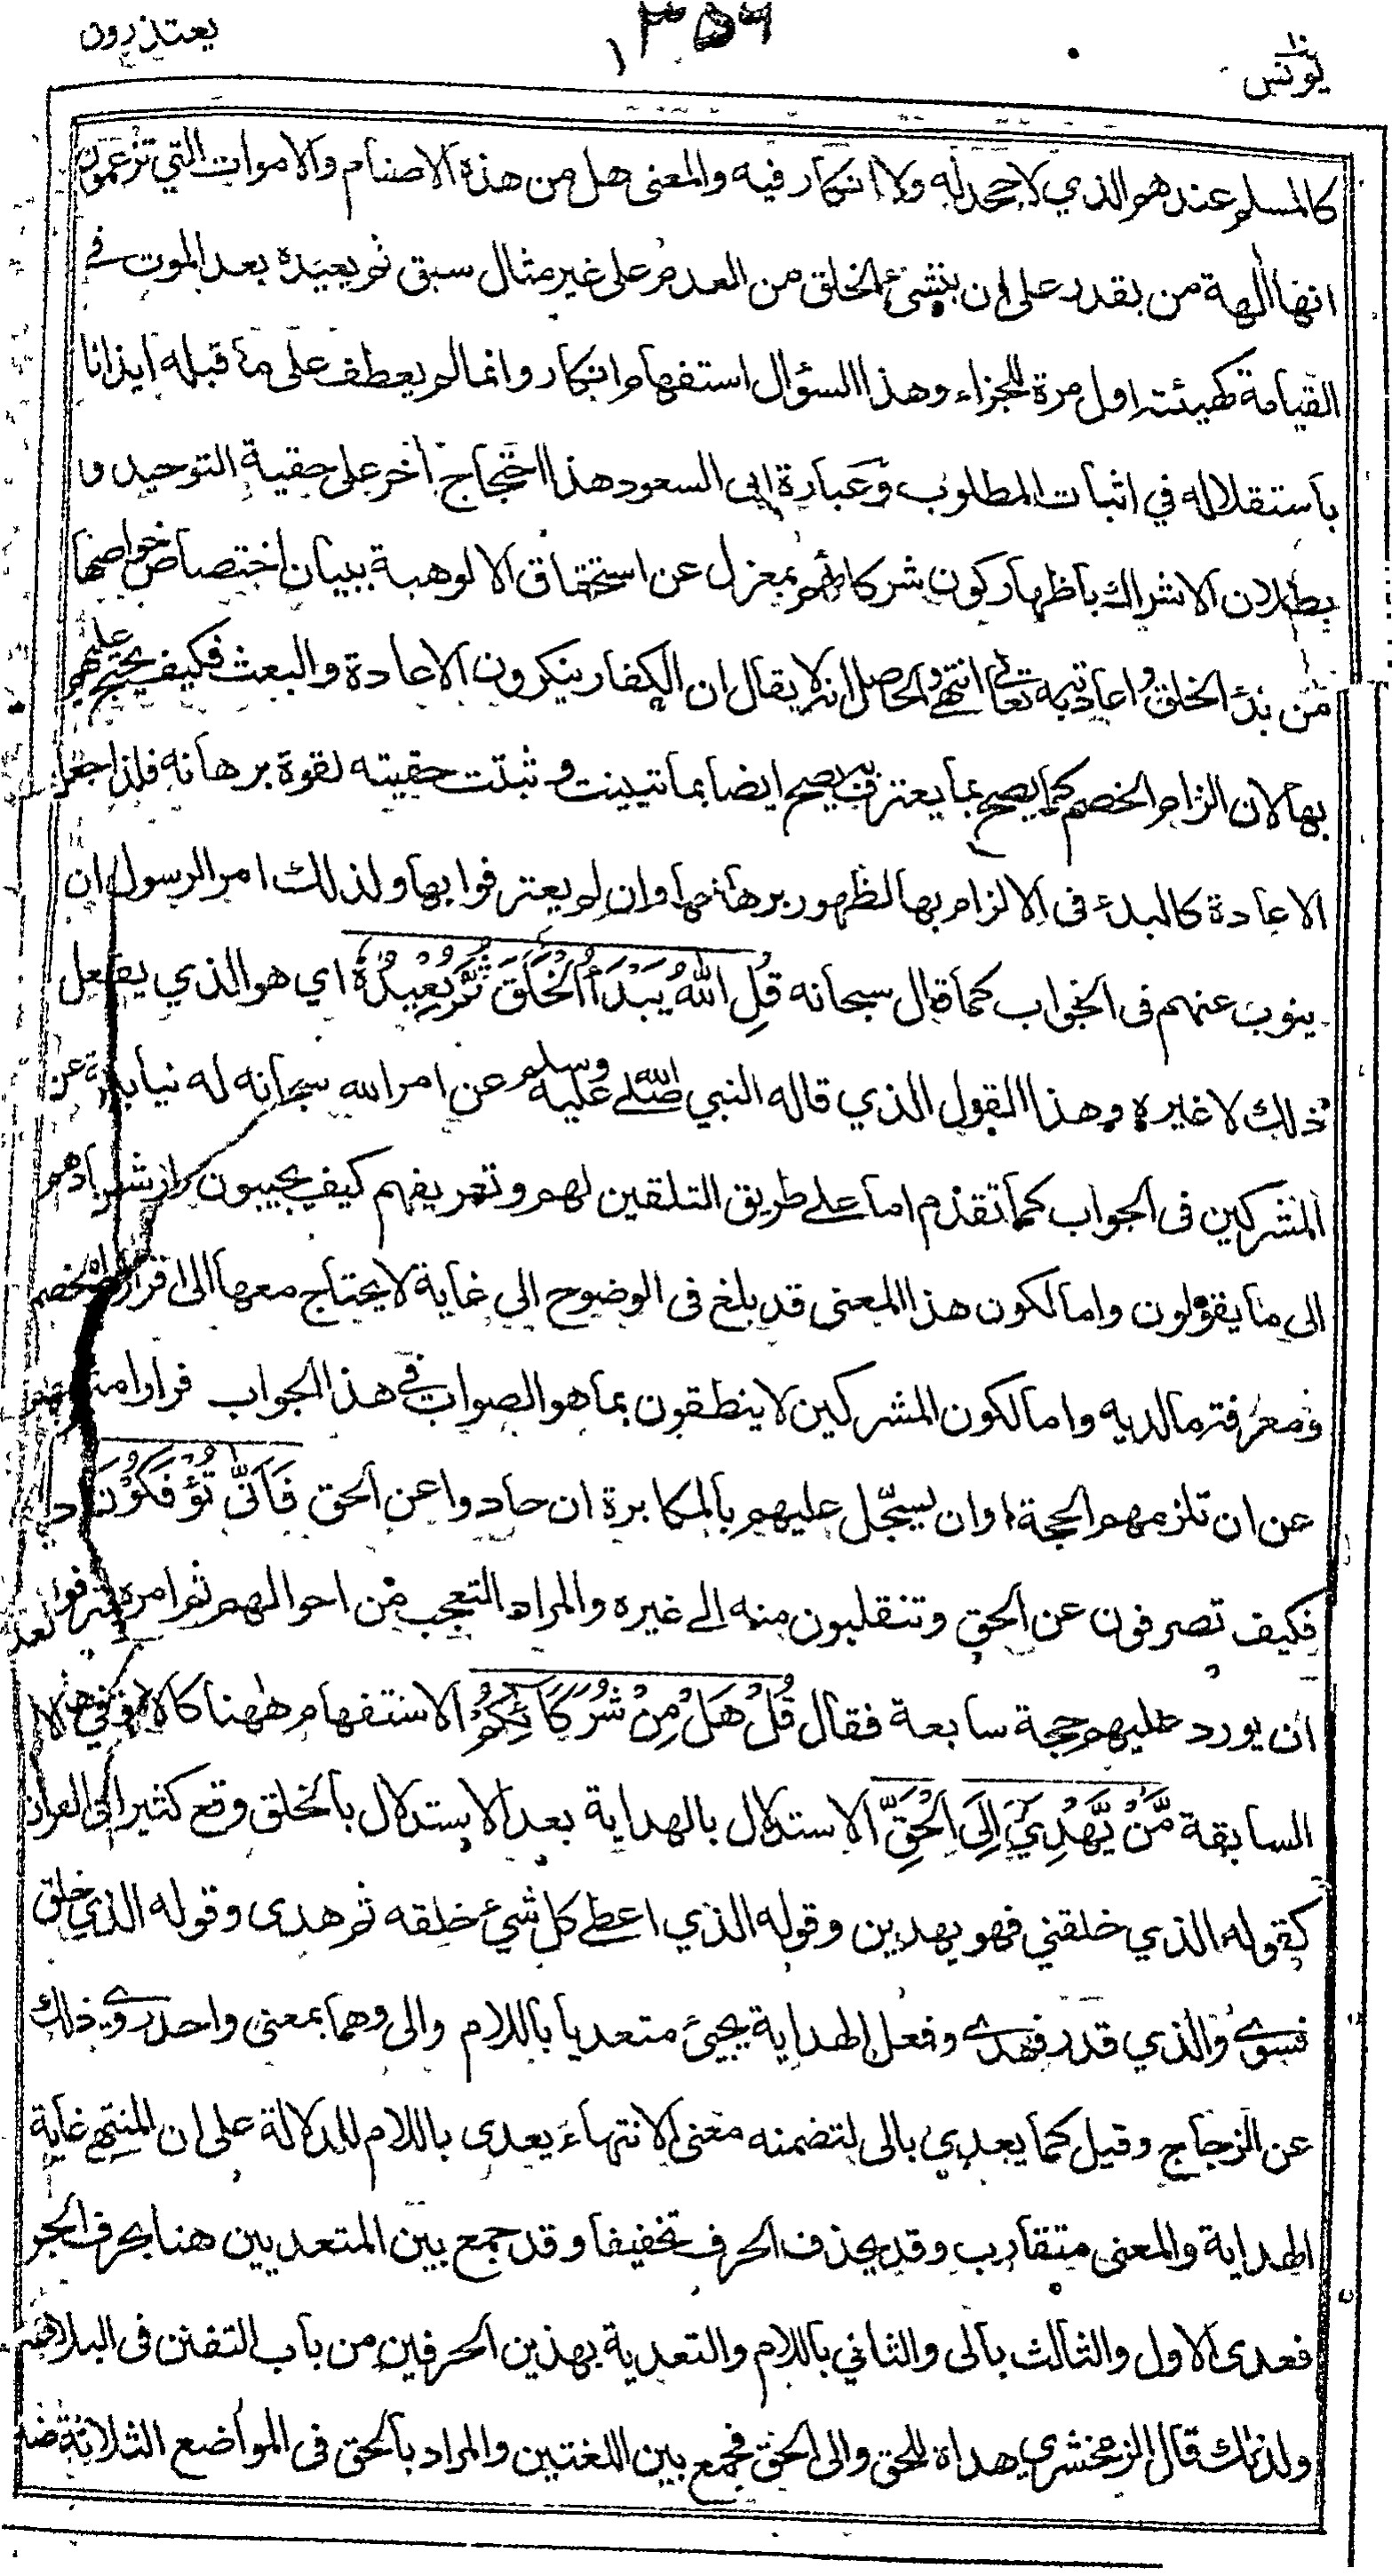 يعتذرون
٣٥٩
١٠
يونس
كالمسلم عندهم الذي لا جحد له ولا انكار فيه والمعنى هل من هذه الاصنام والاموات التي تزعمون
انها الهة من يقدر على ان ينشئ الخلق من العدم على غير مثال سبق ثم يعيده بعد الموت في
القيامة كهيئته اول مرة للجزاء وهذا السؤال استفهام انكار وانما لم يعطف على ما قبله ايذانا
باستقلاله في اثبات المطلوب وعبارة ابي السعود هذا احتجاج آخر على حقية التوحيد و
بطلان الاشراك باظهار كون شركائهم بمعزل عن استحقاق الالوهية ببيان اختصاص خواصها
من بدئ الخلق واعادته به تعالى انتهى والحاصل انه لا يقال ان الكفار ينكرون الاعادة والبعث فكيف يحتج عليهم
بها لان الزام الخصم كما يصح بما يعترف به يصح ايضا بما تبينت وثبتت حقيته لقوة برهانه فلذا جعل
الاعادة كالبدئ فى الالزام بها لظهور برهانها وان لم يعترفوا بها ولذلك امر الرسول ان
ينوب عنهم فى الجواب كما قال سبحانه قُلِ اللّٰهُ يَبْدَأُ الْخَلْقَ ثُمَّ يُعِيْدُهٗ اي هو الذي يفعل
ذلك لا غيره وهذا القول الذي قاله النبي صلى الله عليه وسلم عن امر الله سبحانه له نيابة عن
المشركين فى الجواب كما تقدم اما على طريق التلقين لهم وتعريفهم كيف يجيبون وارشادهم
الى ما يقولون واما لكون هذا المعنى قد بلغ فى الوضوح الى غاية لا يحتاج معها الى اقرار الخصم
ومعرفة ما لديه واما لكون المشركين لا ينطقون بما هو الصواب في هذا الجواب فرارا منهم
عن ان تلزمهم الحجة او ان يسجّل عليهم بالمكابرة ان حادوا عن الحق فَاَنّٰى تُؤْفَكُوْنَ اي
فكيف تصرفون عن الحق وتنقلبون منه الى غيره والمراد التعجب من احوالهم ثم امره
ان يورد عليهم حجة سابعة فقال قُلْ هَلْ مِنْ شُرَكَآئِكُمْ الاستفهام ههنا كالاستفهامات
السابقة مَّنْ يَّهْدِيْٓ اِلَى الْحَقِّ الاستدلال بالهداية بعد الاستدلال بالخلق وقع كثيرا في القران
كقوله الذي خلقني فهو يهدين وقوله الذي اعطى كل شيئ خلقه ثم هدى وقوله الذي خلق
فسوى والذي قدر فهدى وفعل الهداية يجيئ متعديا باللام والى وهما بمعنى واحد روي ذلك
عن الزجاج وقيل كما يعدي بالى لتضمنه معنى الانتهاء يعدى باللام للدلالة على ان المنتهى غاية
الهداية والمعنى متقارب وقد يحذف الحرف تخفيفا وقد جمع بين المتعديين هنا بحرف الجر
فعدى الاول والثالث بالى والثاني باللام والتعدية بهذين الحرفين من باب التفنن فى البلاغة
ولذلك قال الزمخشري هداه للحق والى الحق فجمع بين اللغتين والمراد بالحق فى المواضع الثلاثة ضد